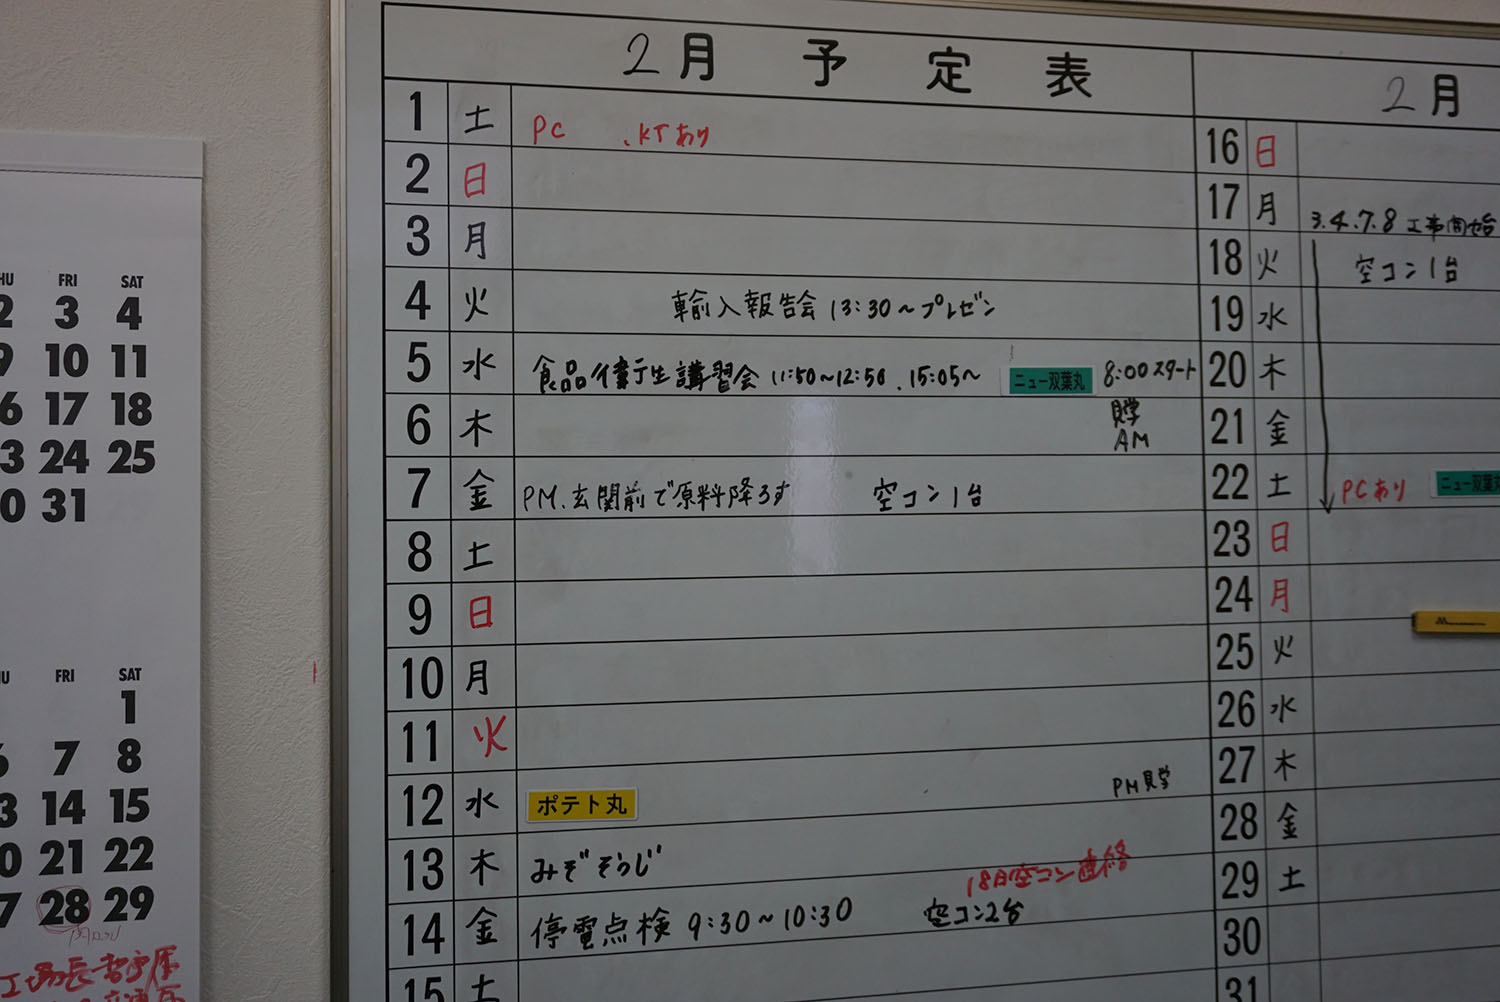 2月 予定表
1 土 PC .KTあり
2 日
3 月
4 火 輸入報告会 13:30〜プレゼン
5 水 食品衛生講習会 11:50〜12:50 .15:05〜 ニュー双葉丸 8:00スタート
見学
AM
6 木
7 金 PM.玄関前で原料降ろす 空コン1台
8 土
9 日
10 月
11 火
12 水 ポテト丸 PM見学
13 木 みぞそうじ
18日空コン連絡
14 金 停電点検 9:30〜10:30 空コン2台
15 土
2月
16 日
17 月 3.4.7.8 工事開始
18 火 空コン1台
19 水
20 木
21 金
22 土 PCあり ニュー双葉丸
23 日
24 月
25 火
26 水
27 木
28 金
29 土
30
31
HU FRI SAT
2 3 4
9 10 11
6 17 18
3 24 25
0 31
HU FRI SAT
1
6 7 8
3 14 15
0 21 22
7 28 29
工場長